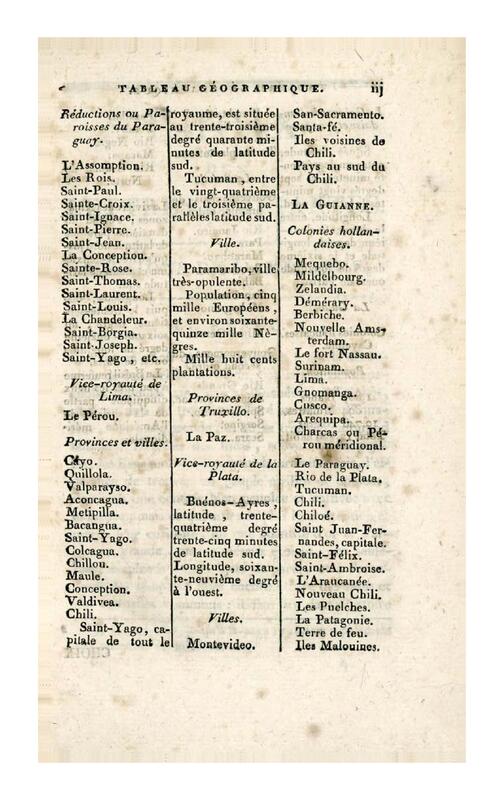 TABLEAU GÉOGRAPHIQUE. iij
Réductions ou Pa-
roisses du Para-
guay.
L'Assomption.
Les Rois.
Saint-Paul.
Sainte-Croix.
Saint-Ignace.
Saint-Pierre.
Saint-Jean.
La Conception.
Sainte-Rose.
Saint-Thomas.
Saint-Laurent.
Saint-Louis.
La Chandeleur.
Saint-Borgia.
Saint-Joseph.
Saint-Yago, etc.
Vice-royauté de
Lima.
Le Pérou.
Provinces et villes.
Cuyo.
Quillola.
Valparayso.
Aconcagua.
Metipilla.
Bacangua.
Saint-Yago.
Colcagua.
Chillou.
Maule.
Conception.
Valdivea.
Chili.
Saint-Yago, ca-
pitale de tout le
royaume, est située
au trente-troisième
degré quarante mi-
nutes de latitude
sud.
Tucuman, entre
le vingt-quatrième
et le troisième pa-
rallèles latitude sud.
Ville.
Paramaribo, ville
très-opulente.
Population, cinq
mille Européens,
et environ soixante-
quinze mille Nè-
gres.
Mille huit cents
plantations.
Provinces de
Truxillo.
La Paz.
Vice-royauté de la
Plata.
Buénos-Ayres,
latitude, trente-
quatrième degré
trente-cinq minutes
de latitude sud.
Longitude, soixan-
te-neuvième degré
à l'ouest.
Villes.
Montevideo.
San-Sacramento.
Santa-fé.
Iles voisines de
Chili.
Pays au sud du
Chili.
LA GUIANNE.
Colonies hollan-
daises.
Mequebo.
Mildelbourg.
Zelandia.
Démérary.
Berbiche.
Nouvelle Ams-
terdam.
Le fort Nassau.
Surinam.
Lima.
Gnomanga.
Cusco.
Arequipa.
Charcas ou Pé-
rou méridional.
Le Paraguay.
Rio de la Plata.
Tucuman.
Chili.
Chiloé.
Saint Juan-Fer-
nandes, capitale.
Saint-Félix.
Saint-Ambroise.
L'Araucanée.
Nouveau Chili.
Les Puelches.
La Patagonie.
Terre de feu.
Iles Malouines.